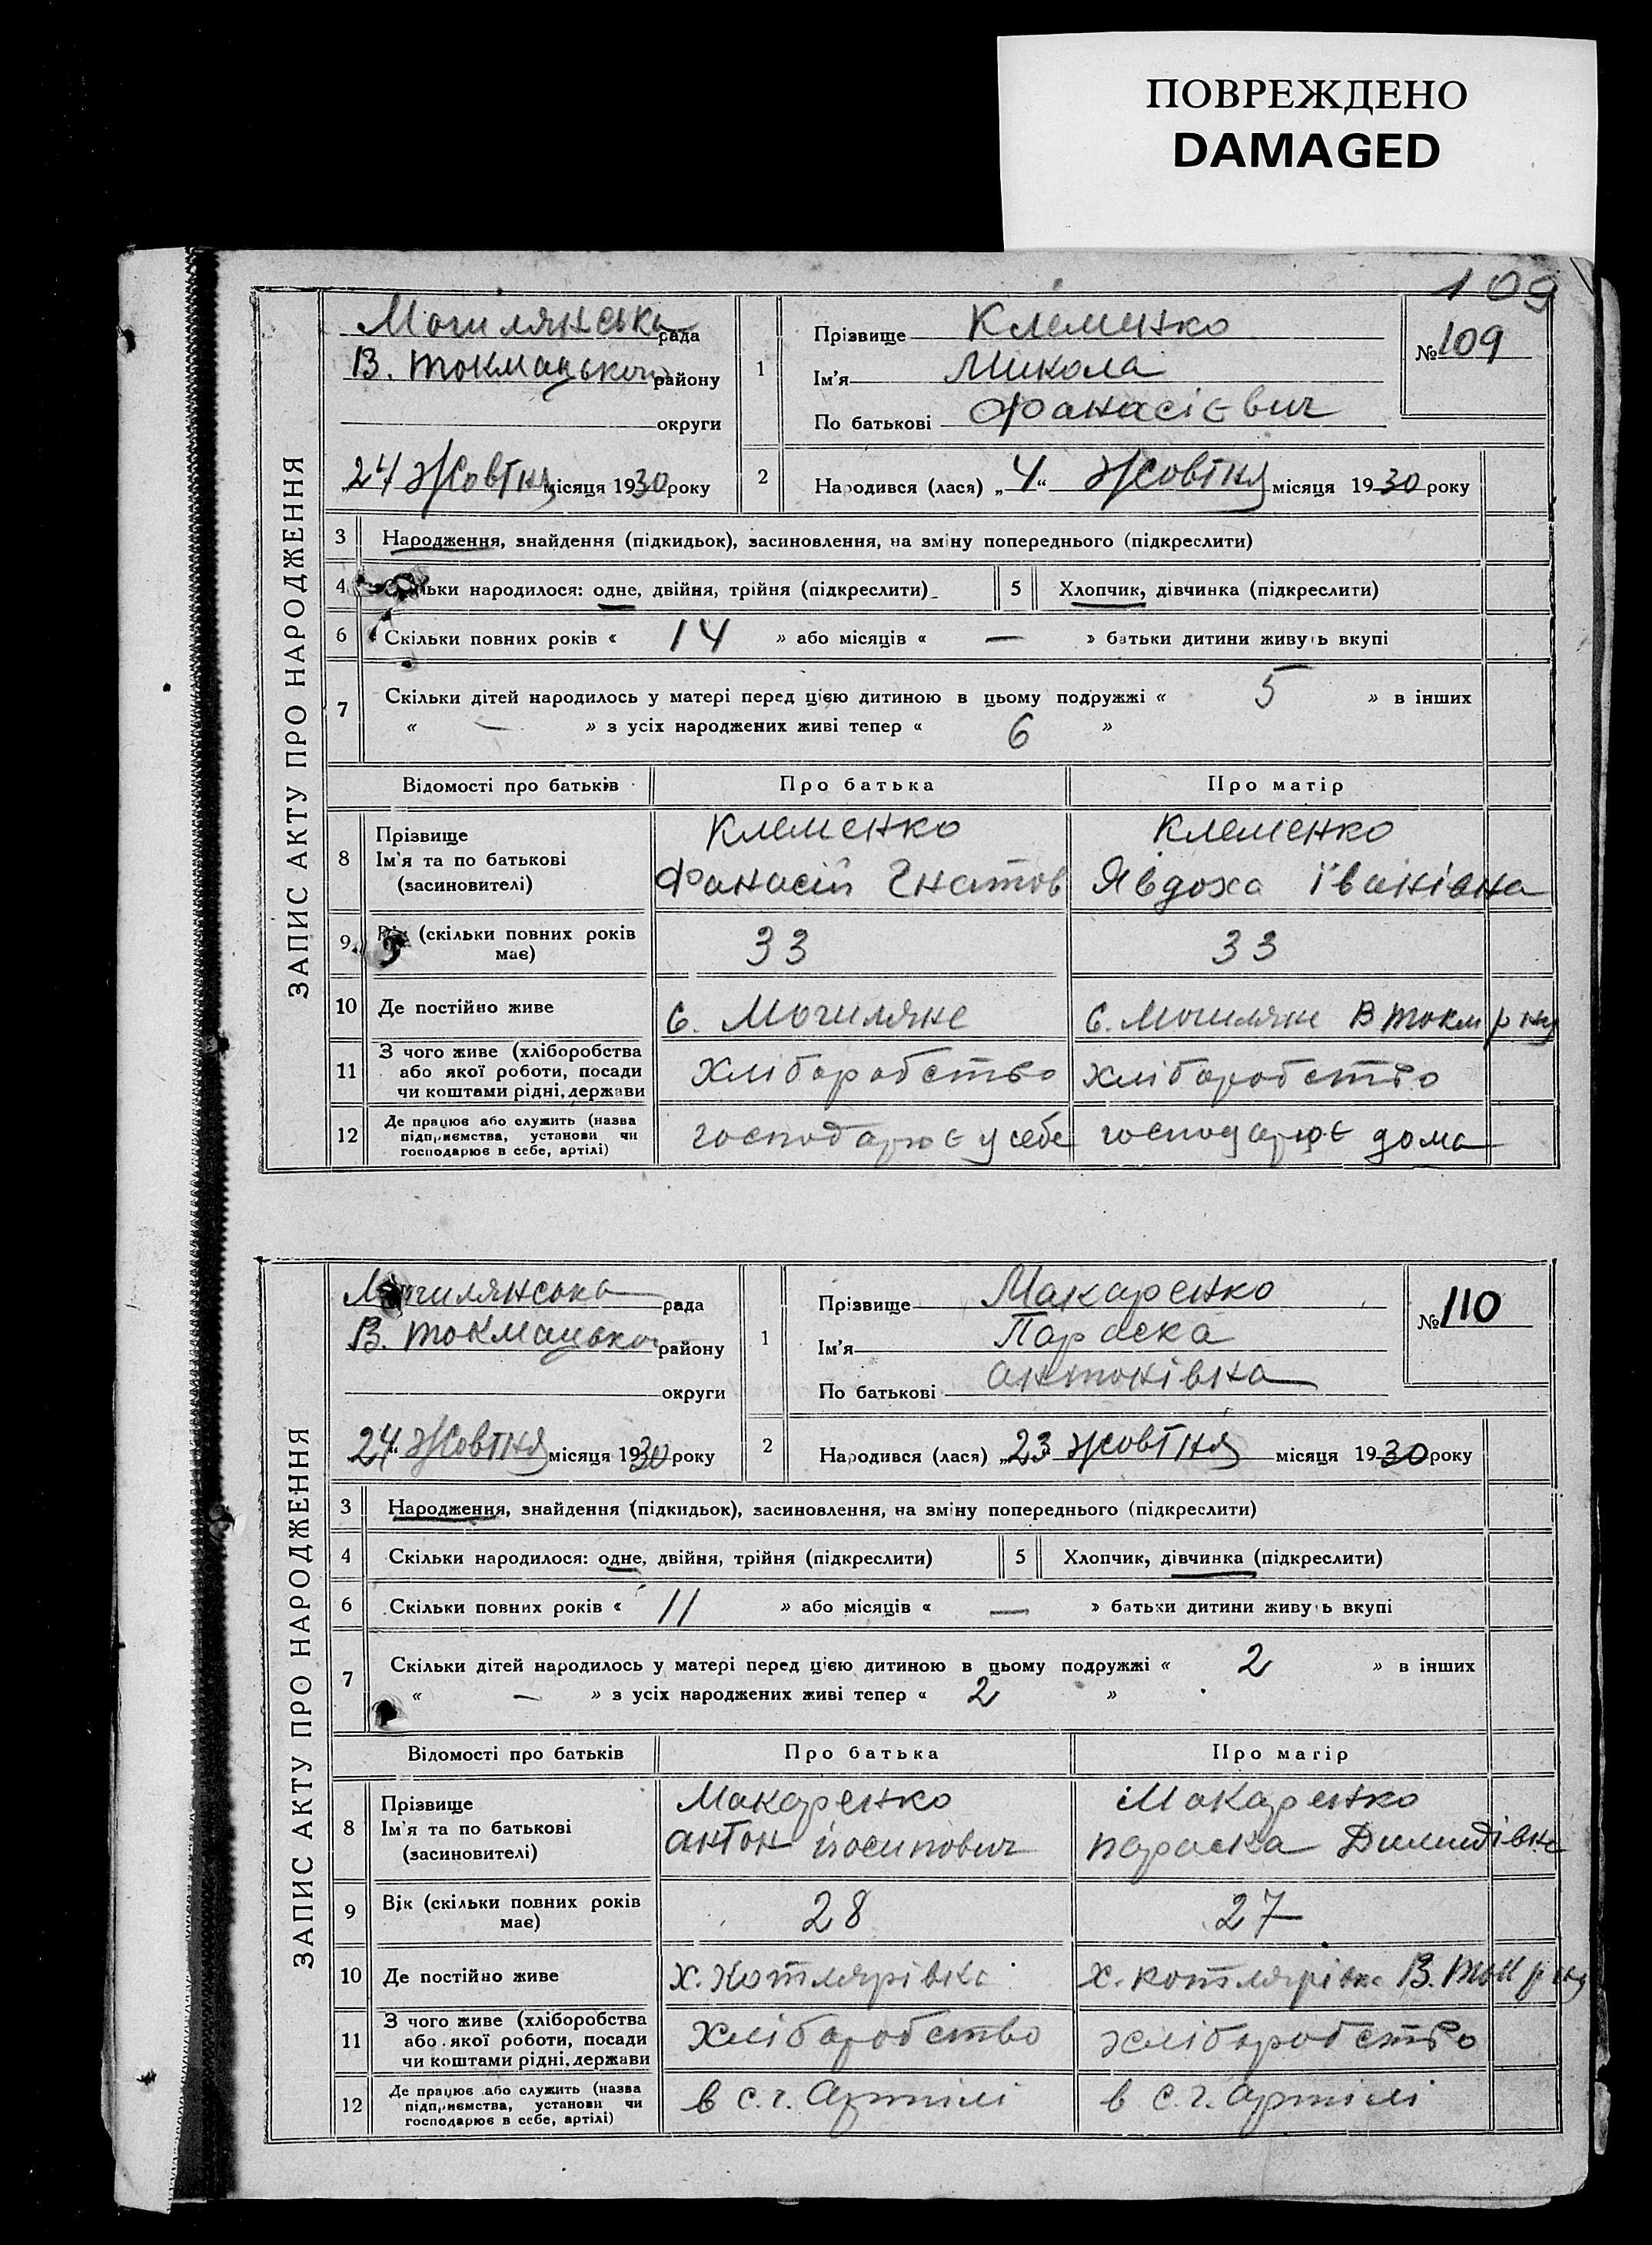 ПОВРЕЖДЕНО
DAMAGED
109
ЗАПИС АКТУ ПРО НАРОДЖЕННЯ
Могилянська рада
В. Токмацького району
округи
24 Жовтня місяця 1930 року
1
Прізвище Клеменко
Ім'я Микола
По батькові Фанасієвич
№ 109
2
Народився (лася) „4“ Жовтня місяця 1930 року
3 Народження, знайдення (підкидьок), засиновлення, на зміну попереднього (підкреслити)
4 Скільки народилося: одне, двійня, трійня (підкреслити) 5 Хлопчик, дівчинка (підкреслити)
6 Скільки повних років « 14 » або місяців « — » батьки дитини живуть вкупі
7 Скільки дітей народилось у матері перед цією дитиною в цьому подружжі « 5 » в інших
« — » з усіх народжених живі тепер « 6 »
Відомості про батьків Про батька Про матір
8 Прізвище
Ім'я та по батькові
(засиновителі)
Клеменко
Фанасій Гнатов
Клеменко
Явдоха Іванівна
9 Вік (скільки повних років
має)
33 33
10 Де постійно живе с. Могиляне с. Могиляне В Токм р ну
11 З чого живе (хліборобства
або якої роботи, посади
чи коштами рідні, держави
Хліборобство хліборобство
12 Де працює або служить (назва
підприємства, установи чи
господарює в себе, артілі)
господарює у себе господарює дома
ЗАПИС АКТУ ПРО НАРОДЖЕННЯ
Могилянська рада
В. Токмацького району
округи
24 Жовтня місяця 1930 року
1
Прізвище Макаренко
Ім'я Параска
По батькові Антонівна
№ 110
2
Народився (лася) „23“ Жовтня місяця 1930 року
3 Народження, знайдення (підкидьок), засиновлення, на зміну попереднього (підкреслити)
4 Скільки народилося: одне, двійня, трійня (підкреслити) 5 Хлопчик, дівчинка (підкреслити)
6 Скільки повних років « 11 » або місяців « — » батьки дитини живуть вкупі
7 Скільки дітей народилось у матері перед цією дитиною в цьому подружжі « 2 » в інших
« — » з усіх народжених живі тепер « 2 »
Відомості про батьків Про батька Про матір
8 Прізвище
Ім'я та по батькові
(засиновителі)
Макаренко
Антон йосипович
Макаренко
параска
9 Вік (скільки повних років
має)
28 27
10 Де постійно живе х. Котлярівка х. Котлярівка В. Ток р ну
11 З чого живе (хліборобства
або якої роботи, посади
чи коштами рідні, держави
Хліборобство хліборобство
12 Де працює або служить (назва
підприємства, установи чи
господарює в себе, артілі)
в с. г. Артілі в с. г. артілі